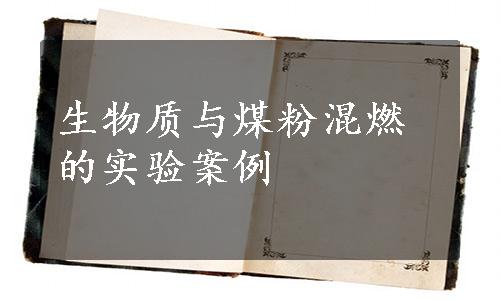 生物质与煤粉混燃
的实验案例